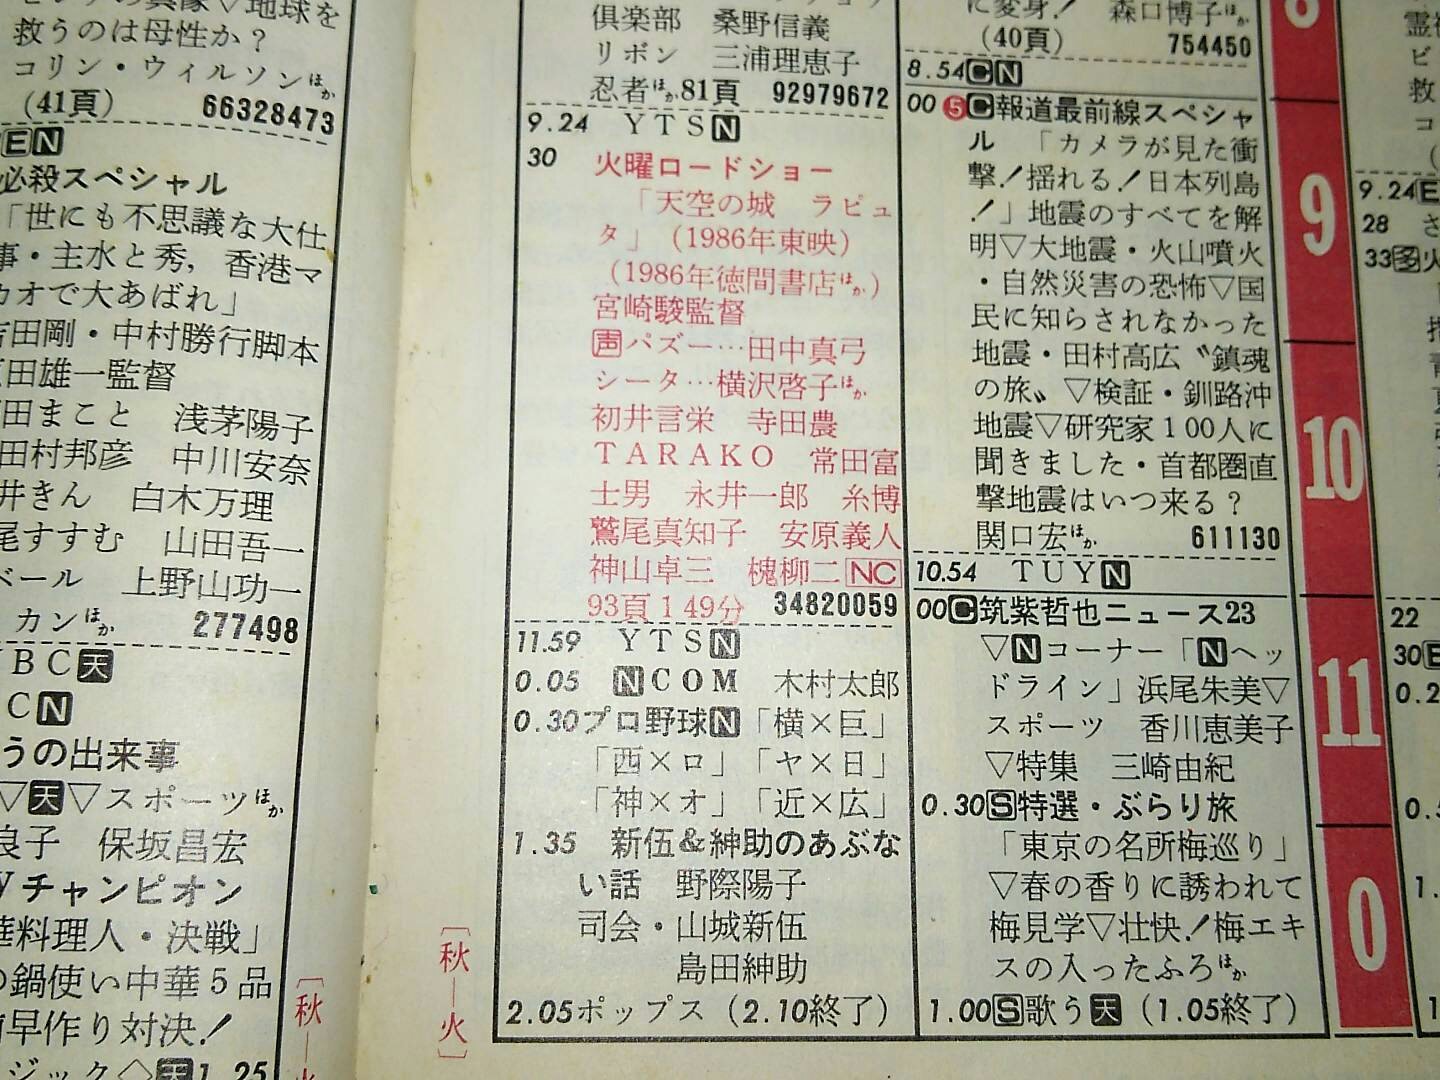 の真像▽地球を
救うのは母性か？
コリン・ウィルソンほか
(41頁) 66328473
EN
必殺スペシャル
「世にも不思議な大仕
事・主水と秀，香港マ
カオで大あばれ」
吉田剛・中村勝行脚本
原田雄一監督
田まこと 浅茅陽子
田村邦彦 中川安奈
井きん 白木万理
尾すすむ 山田吾一
ベール 上野山功一
カンほか 277498
BC天
CN
うの出来事
▽天▽スポーツほか
良子 保坂昌宏
チャンピオン
華料理人・決戦」
の鍋使い中華5品
前早作り対決！
ジック◇天1.25
[秋―火
倶楽部 桑野信義
リボン 三浦理恵子
忍者ほか81頁 92979672
9.24 YTSN
30 火曜ロードショー
「天空の城 ラピュ
タ」（1986年東映）
（1986年徳間書店ほか）
宮崎駿監督
声パズー…田中真弓
シータ…横沢啓子ほか
初井言栄 寺田農
TARAKO 常田富
士男 永井一郎 糸博
鷲尾真知子 安原義人
神山卓三 槐柳二NC
93頁 149分 34820059
11.59 YTSN
0.05 NCOM 木村太郎
0.30プロ野球N「横×巨」
「西×ロ」「ヤ×日」
「神×オ」「近×広」
1.35 新伍&紳助のあぶな
い話 野際陽子
司会・山城新伍
島田紳助
2.05ポップス（2.10終了）
[秋―火]
に変身！ 森口博子ほか
(40頁) 754450
8.54CN
00 5C報道最前線スペシャ
ル 「カメラが見た衝
撃！揺れる！日本列島
！」地震のすべてを解
明▽大地震・火山噴火
・自然災害の恐怖▽国
民に知らされなかった
地震・田村高広〝鎮魂
の旅〟▽検証・釧路沖
地震▽研究家100人に
聞きました・首都圏直
撃地震はいつ来る？
関口宏ほか 611130
10.54 TUYN
00C筑紫哲也ニュース23
▽Nコーナー「Nヘッ
ドライン」浜尾朱美▽
スポーツ 香川恵美子
▽特集 三崎由紀
0.30S特選・ぶらり旅
「東京の名所梅巡り」
▽春の香りに誘われて
梅見学▽壮快！梅エキ
スの入ったふろほか
1.00S歌う天（1.05終了）
8
9
10
11
0
霊
ビ
救
コ
(
9.24E
28 さ
33多火
22
30E
0.2
0.5
1.